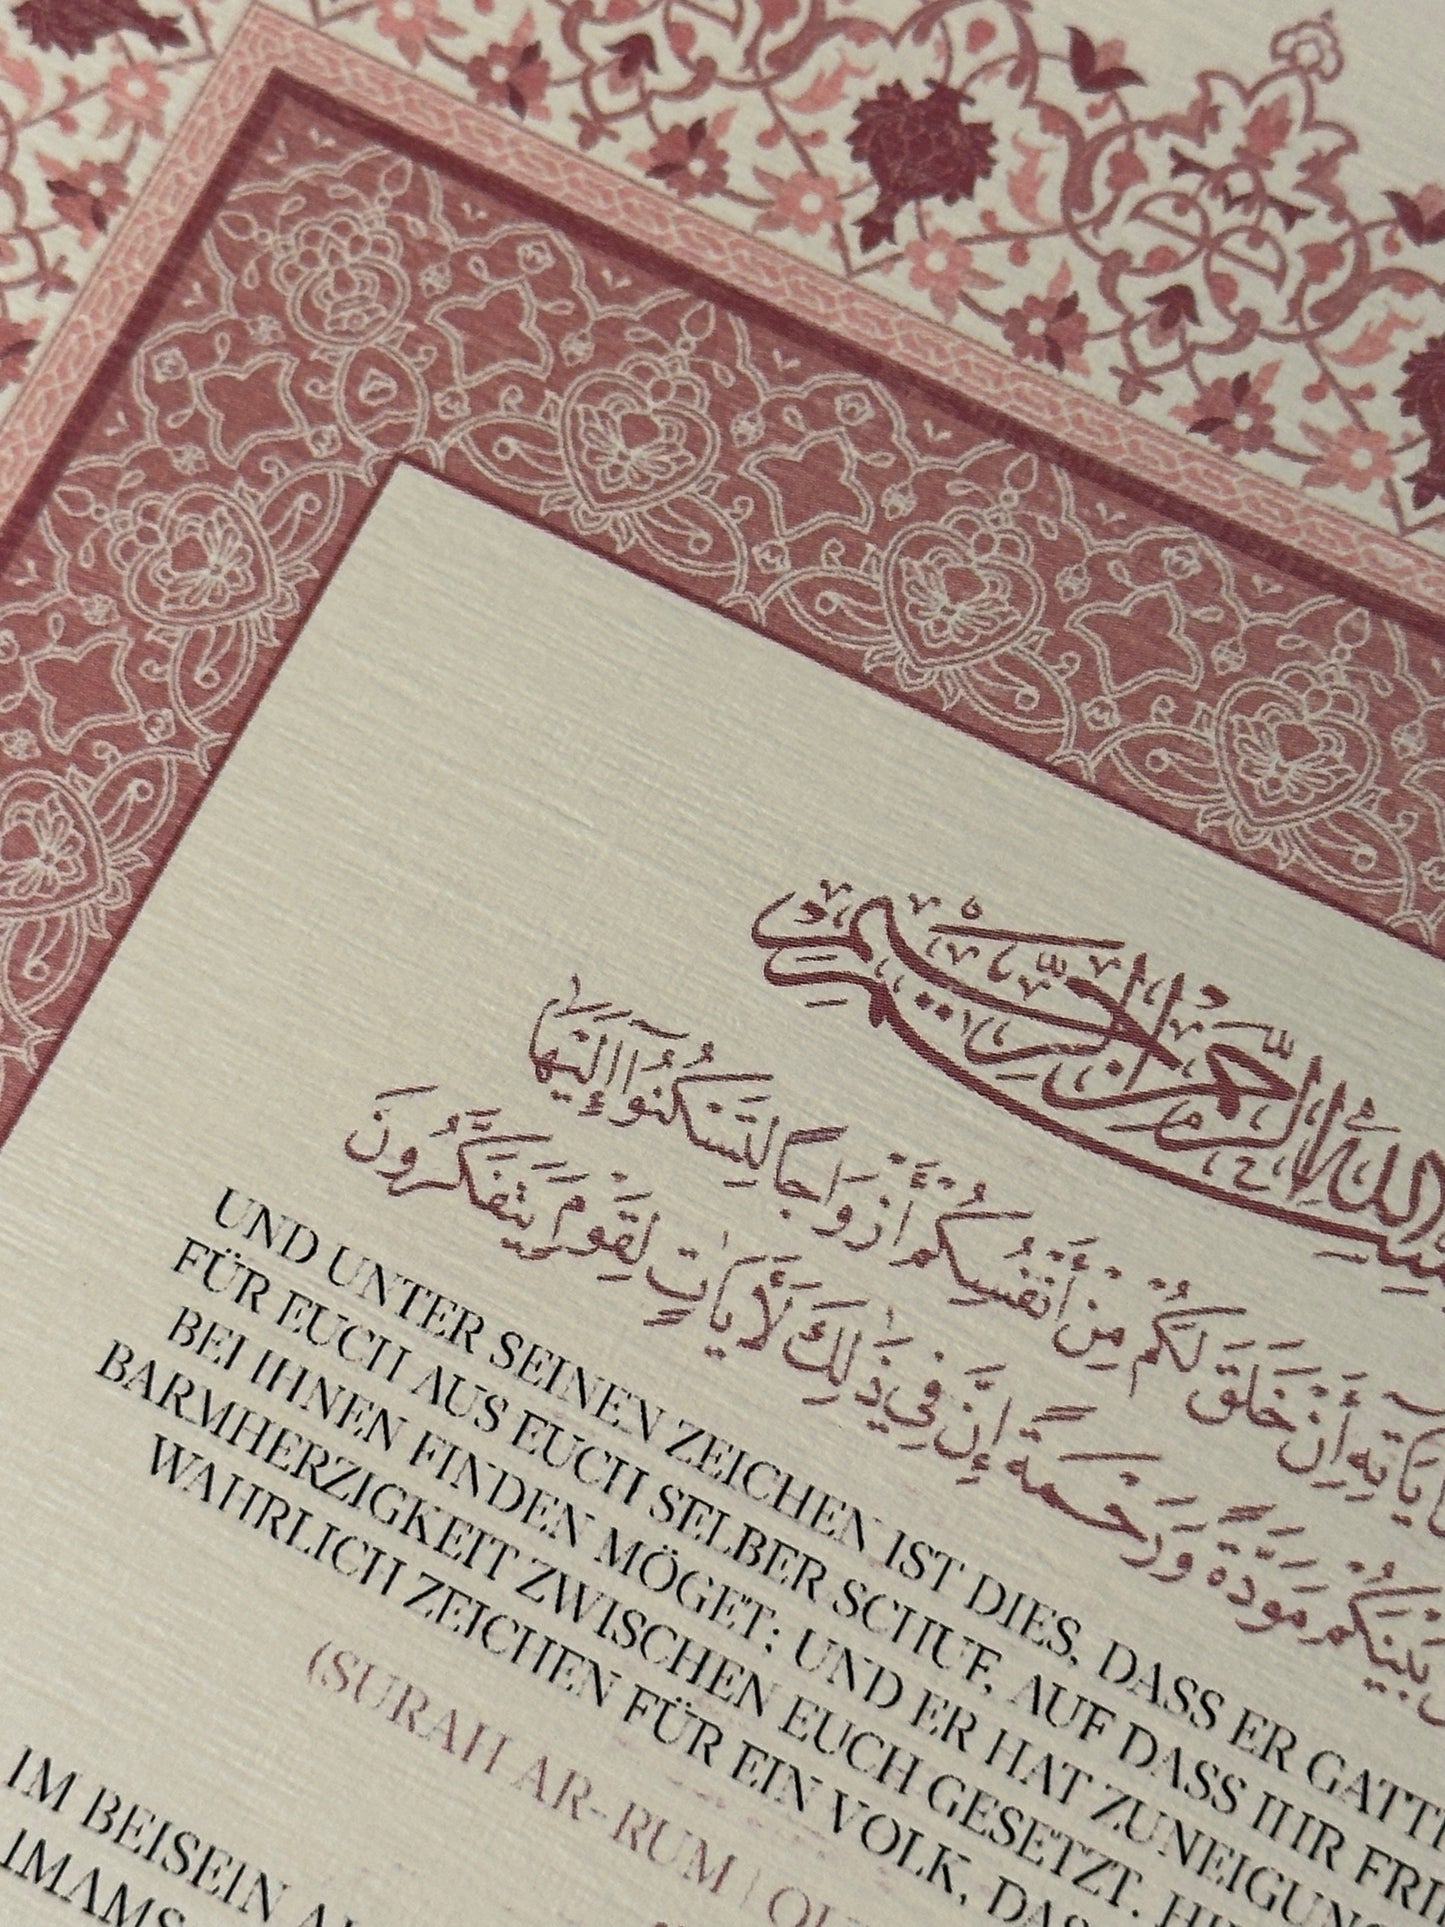 اللَّهِ الرَّحْمَٰنِ الرَّحِيمِ
آيَاتِهِ أَنْ خَلَقَ لَكُمْ مِنْ أَنْفُسِكُمْ أَزْوَاجًا لِتَسْكُنُوا إِلَيْهَا
بَيْنَكُمْ مَوَدَّةً وَرَحْمَةً إِنَّ فِي ذَٰلِكَ لَآيَاتٍ لِقَوْمٍ يَتَفَكَّرُونَ
UND UNTER SEINEN ZEICHEN IST DIES, DASS ER
FÜR EUCH AUS EUCH SELBER SCHUF, AUF DASS IHR
BEI IHNEN FINDEN MÖGET; UND ER HAT
BARMHERZIGKEIT ZWISCHEN EUCH GESETZT.
WAHRLICH ZEICHEN FÜR EIN VOLK,
(SURAH AR-RUM |
IM BEISEIN
IMAMS